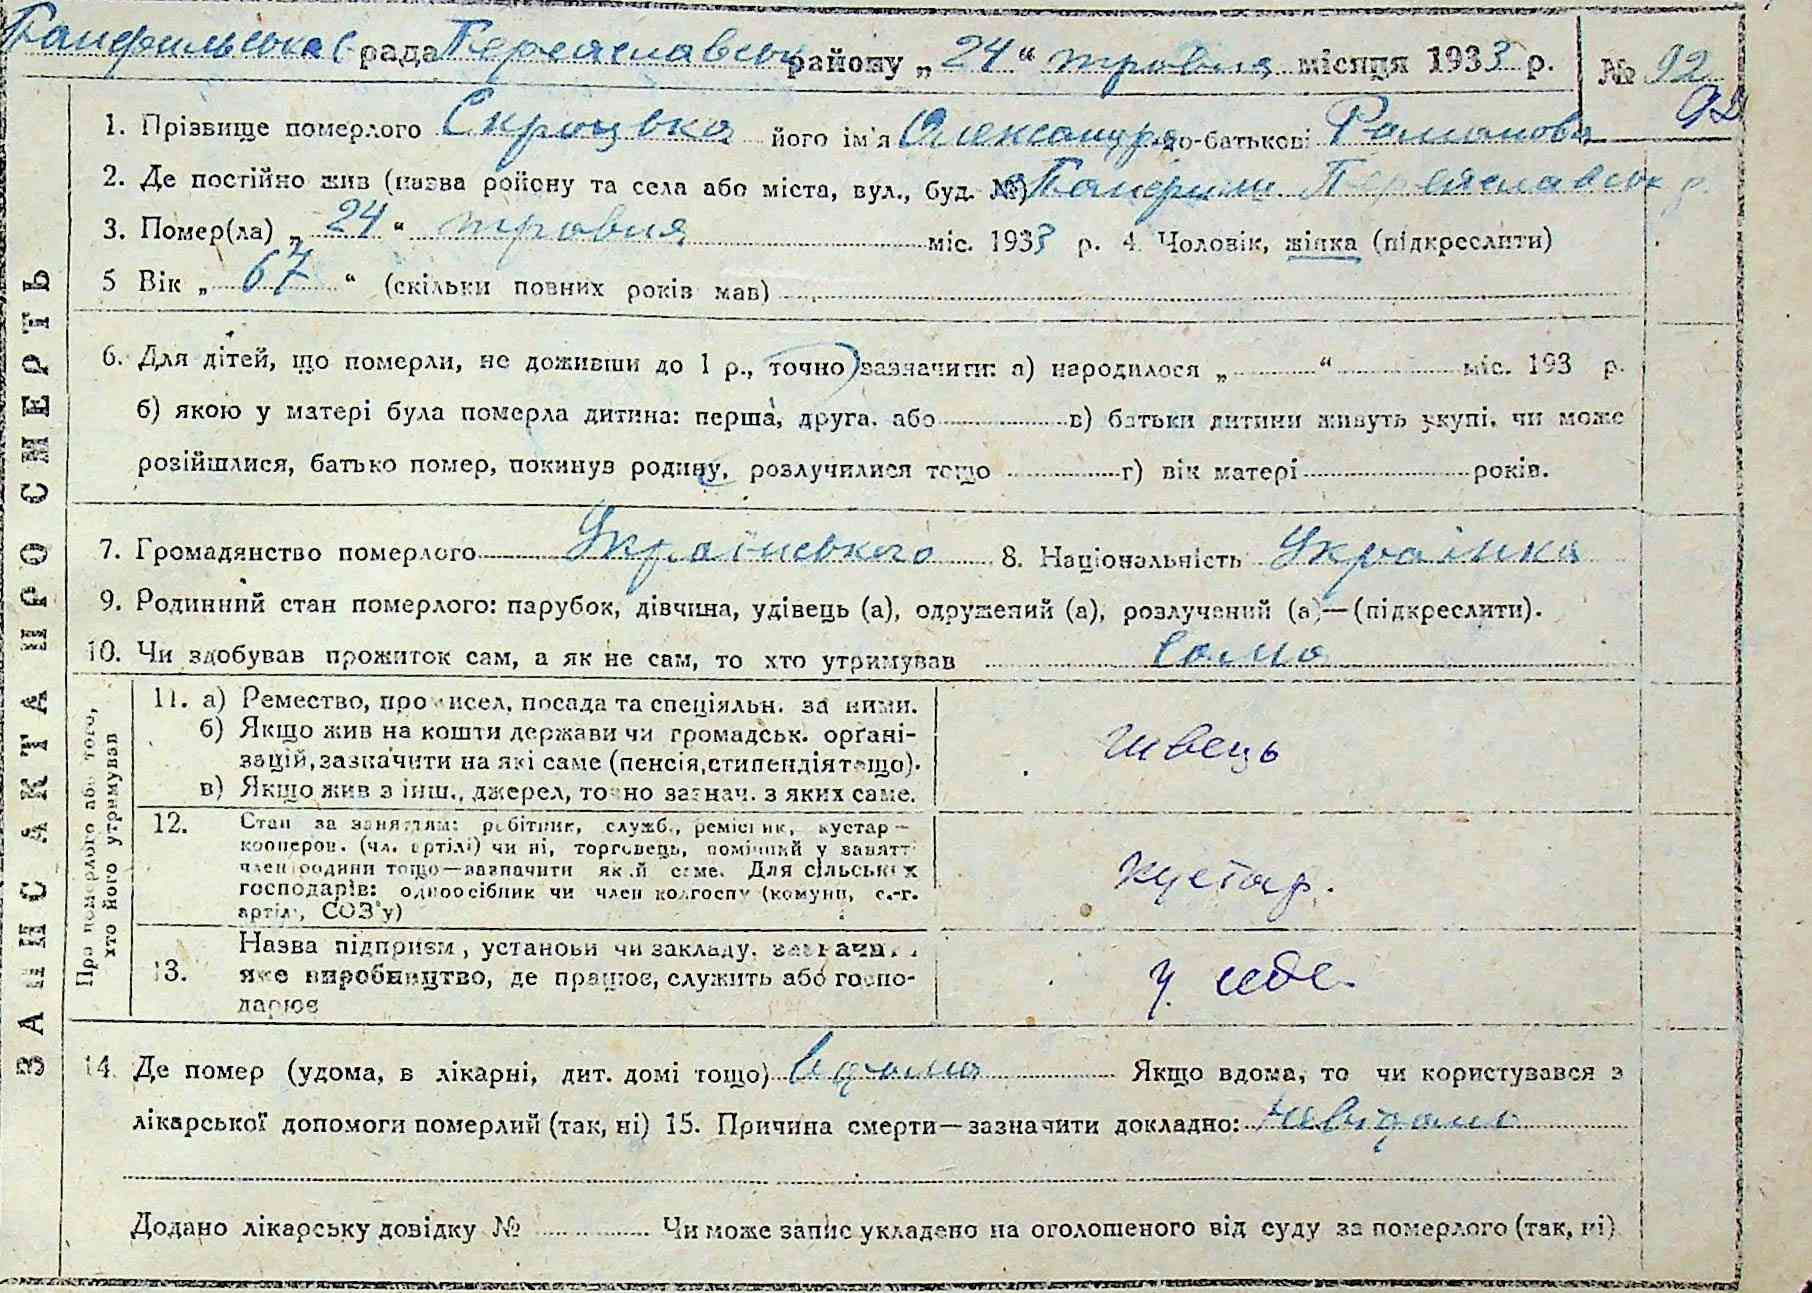 Панфильська с рада Переяславськ району „24“ травня місяця 1933 р. № 92
92
ЗАПИС АКТА ПРО СМЕРТЬ
1. Прізвище померлого Скроцька його ім'я Олександра по-батькові Романовна
2. Де постійно жив (назва району та села або міста, вул., буд. №) Панфили Переяславськ р.
3. Помер(ла) „24“ травня міс. 1933 р. 4. Чоловік, жінка (підкреслити)
5 Вік „67“ (скільки повних років мав)
6. Для дітей, що померли, не доживши до 1 р., точно зазначити: а) народилося „ “ міс. 193 р.
б) якою у матері була померла дитина: перша, друга. або в) батьки дитини живуть укупі. чи може
розійшлися, батько помер, покинув родину, розлучилися тощо г) вік матері років.
7. Громадянство померлого Українського 8. Національність Українка
9. Родинний стан померлого: парубок, дівчина, удівець (а), одружений (а), розлучений (а)—(підкреслити).
10. Чи здобував прожиток сам, а як не сам, то хто утримував сама
Про померлого або того, хто його утримував
11. а) Ремество, промисел, посада та спеціяльн. за ними.
б) Якщо жив на кошти держави чи громадськ. орґані-
зацій, зазначити на які саме (пенсія, стипендія тощо).
в) Якщо жив з інш., джерел, точно зазнач. з яких саме.
швець
12. Стан за заняттям: робітник, служб., ремісник, кустар—
кооперов. (чл. артілі) чи ні, торговець, помічний у занятт
член родини тощо—зазначити який саме. Для сільських
господарів: одноосібник чи член колгоспу (комуни, с.-г.
артілі, СОЗ'у)
кустар.
13. Назва підприєм, установи чи закладу, зазначи
яке виробництво, де працює, служить або госпо-
дарює
у себе.
14. Де помер (удома, в лікарні, дит. домі тощо) вдома Якщо вдома, то чи користувався з
лікарської допомоги померлий (так, ні) 15. Причина смерти—зазначити докладно: невідомо
Додано лікарську довідку № Чи може запис укладено на оголошеного від суду за померлого (так, ні)